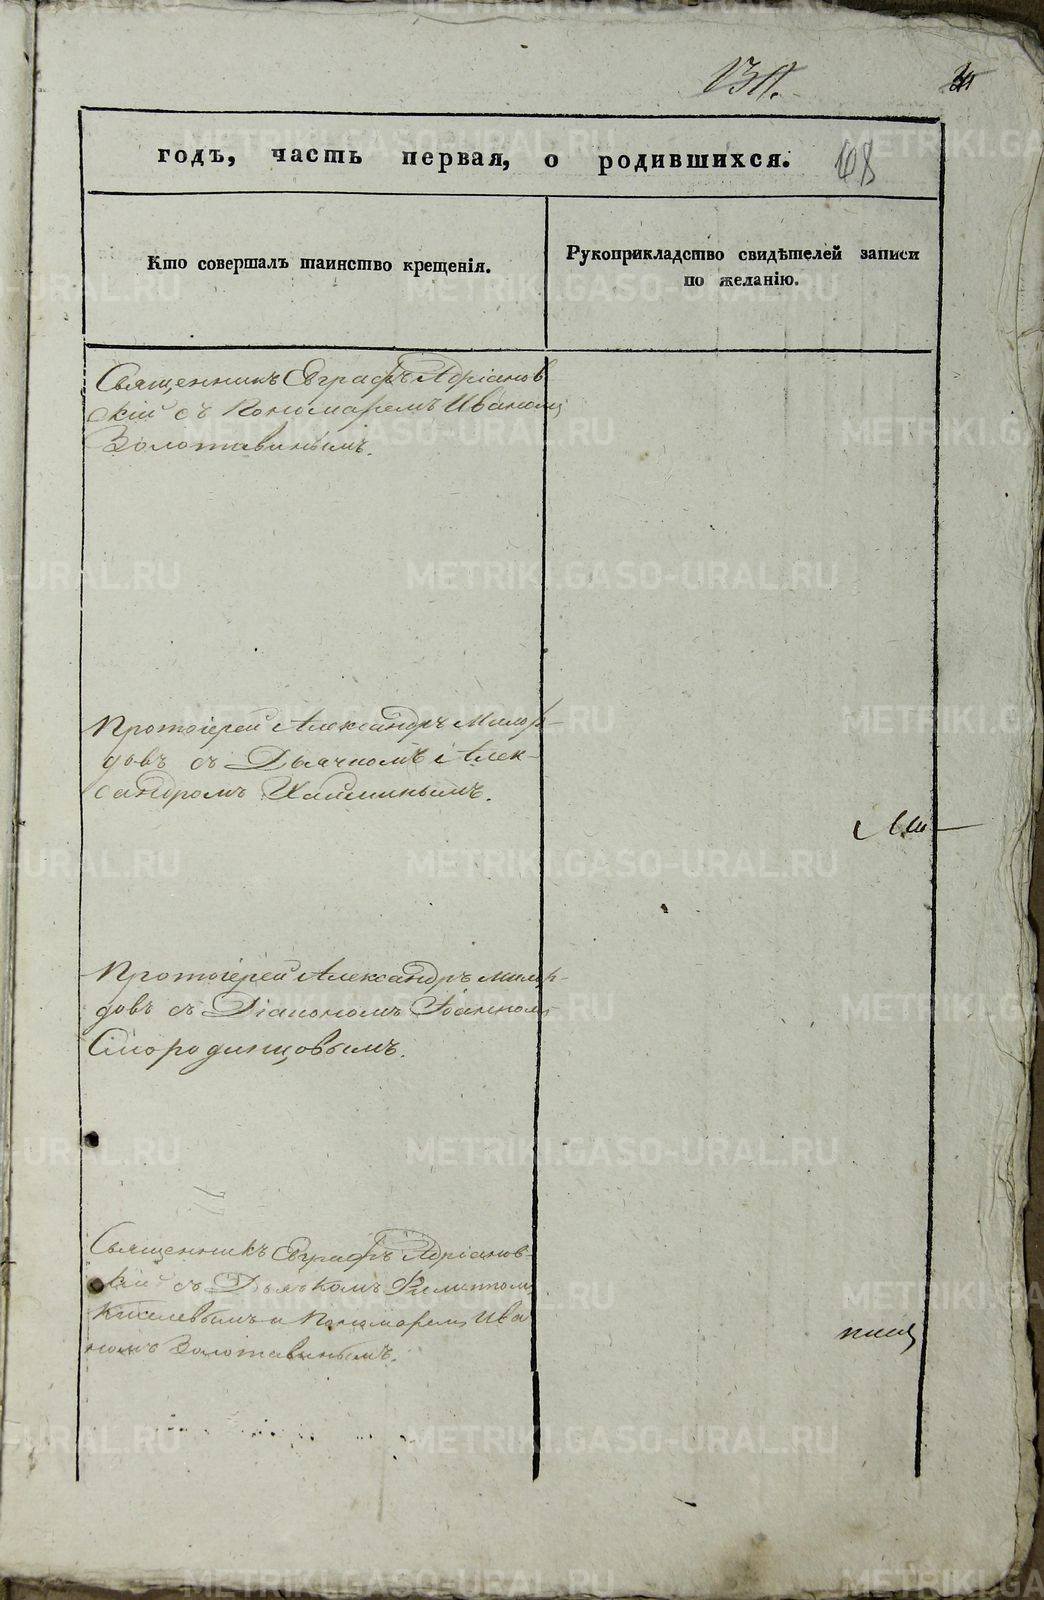 годъ, часть первая, о родившихся.
168
Кто совершалъ таинство крещенія.
Рукоприкладство свидѣтелей записи
по желанію.
Священникъ Евграфъ Адріанов
скій съ Пономаремъ Иваномъ
Золотавинымъ.
Протоіерей Александръ Милор-
довъ съ Дьячкомъ Алек-
сандромъ Хайминымъ.
Протоіерей Александръ Милор-
довъ съ Діакономъ Іоанномъ
Смородинцовымъ.
Священникъ Евграфъ Адріанов-
скій съ Дьячкомъ Филиппомъ
Киселевымъ и Пономаремъ Ива
номъ Золотавинымъ.
METRIKI.GASO-URAL.RU